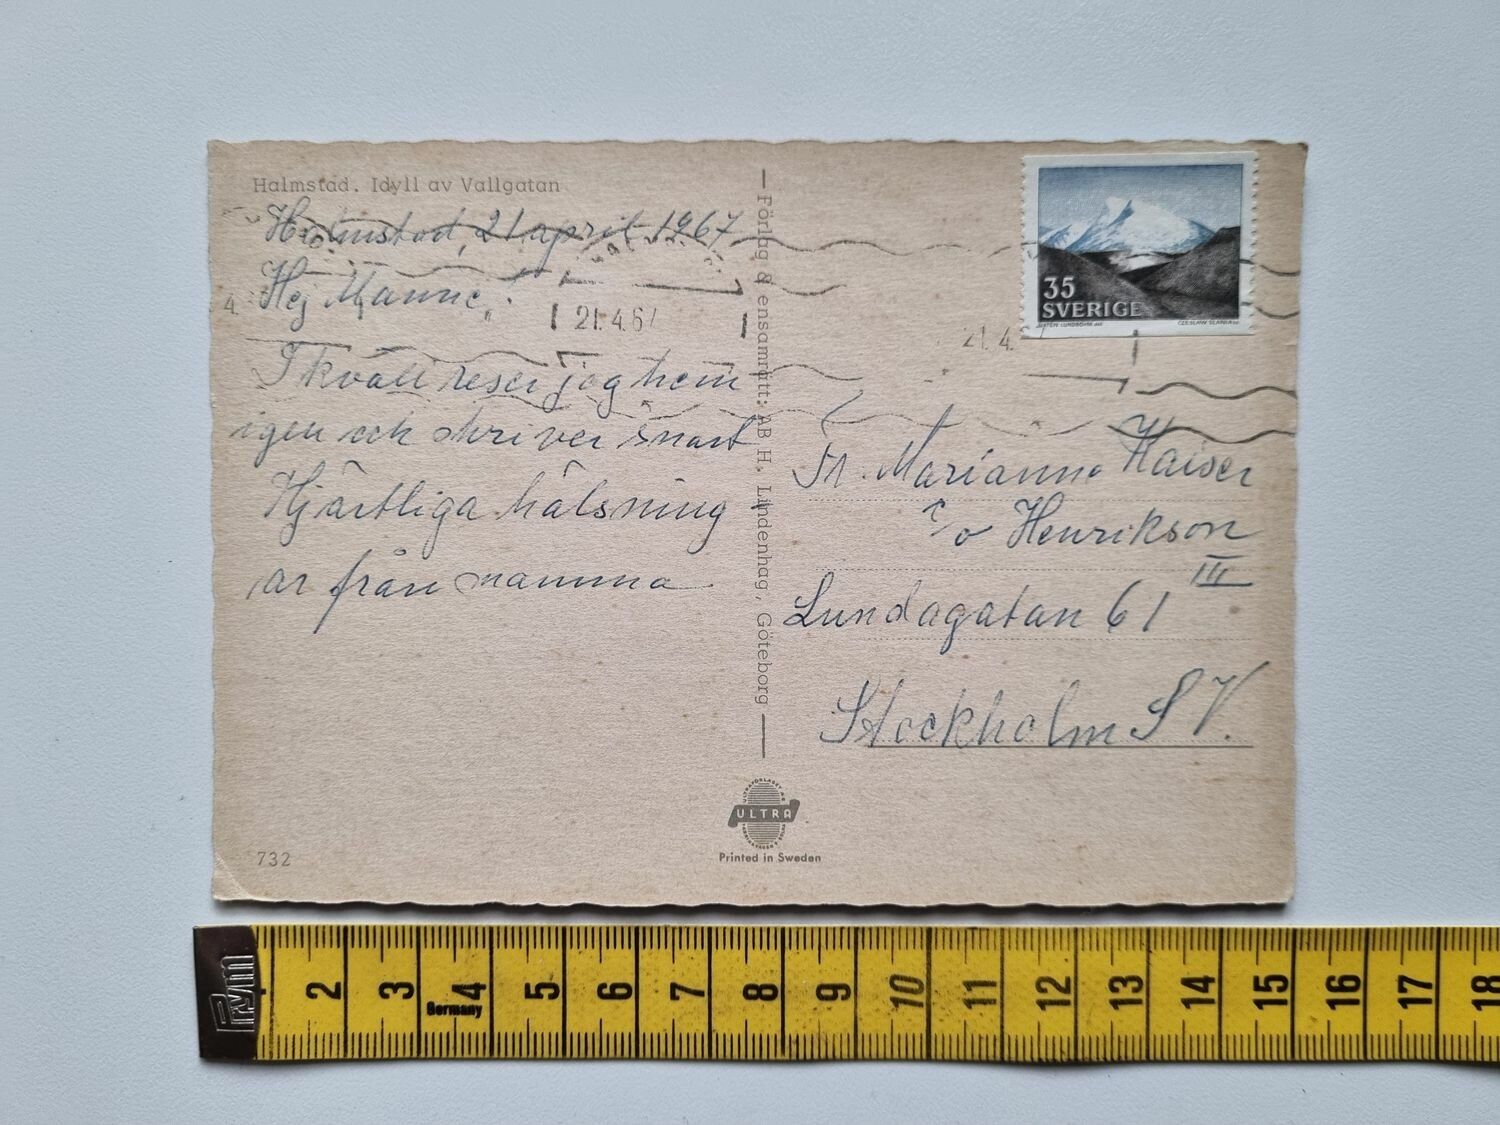 Halmstad. Idyll av Vallgatan
Halmstad, 21 april 1967
Hej Manne,
I kväll reser jag hem
igen och skriver snart
Hjärtliga hälsning
ar från mamma
732
Förlag & ensamrätt: AB H. Lindenhag, Göteborg
ULTRA
Printed in Sweden
21.4.67
21.4.
35
SVERIGE
CZESLAW SLANIA sc
Fr. Marianne Kaiser
c/o Henrikson
III
Lundagatan 61
Stockholm SV.
Prym
Germany
2 3 4 5 6 7 8 9 10 11 12 13 14 15 16 17 18